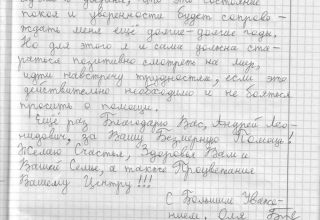 что это состояние
покоя и уверенности будет сопрово-
ждать меня ещё долгие-долгие годы.
Но для этого я и сама должна ста-
раться позитивно смотреть на мир,
идти навстречу трудностям, если это
действительно необходимо и не бояться
просить о помощи.
Ещё раз Благодарю Вас, Андрей Лео-
нидович, за Вашу Безмерную Помощь!
Желаю Счастья, Здоровья Вам и
Вашей Семье, а также Процветания
Вашему Центру!!!
С Большим Уваже-
нием, Оля